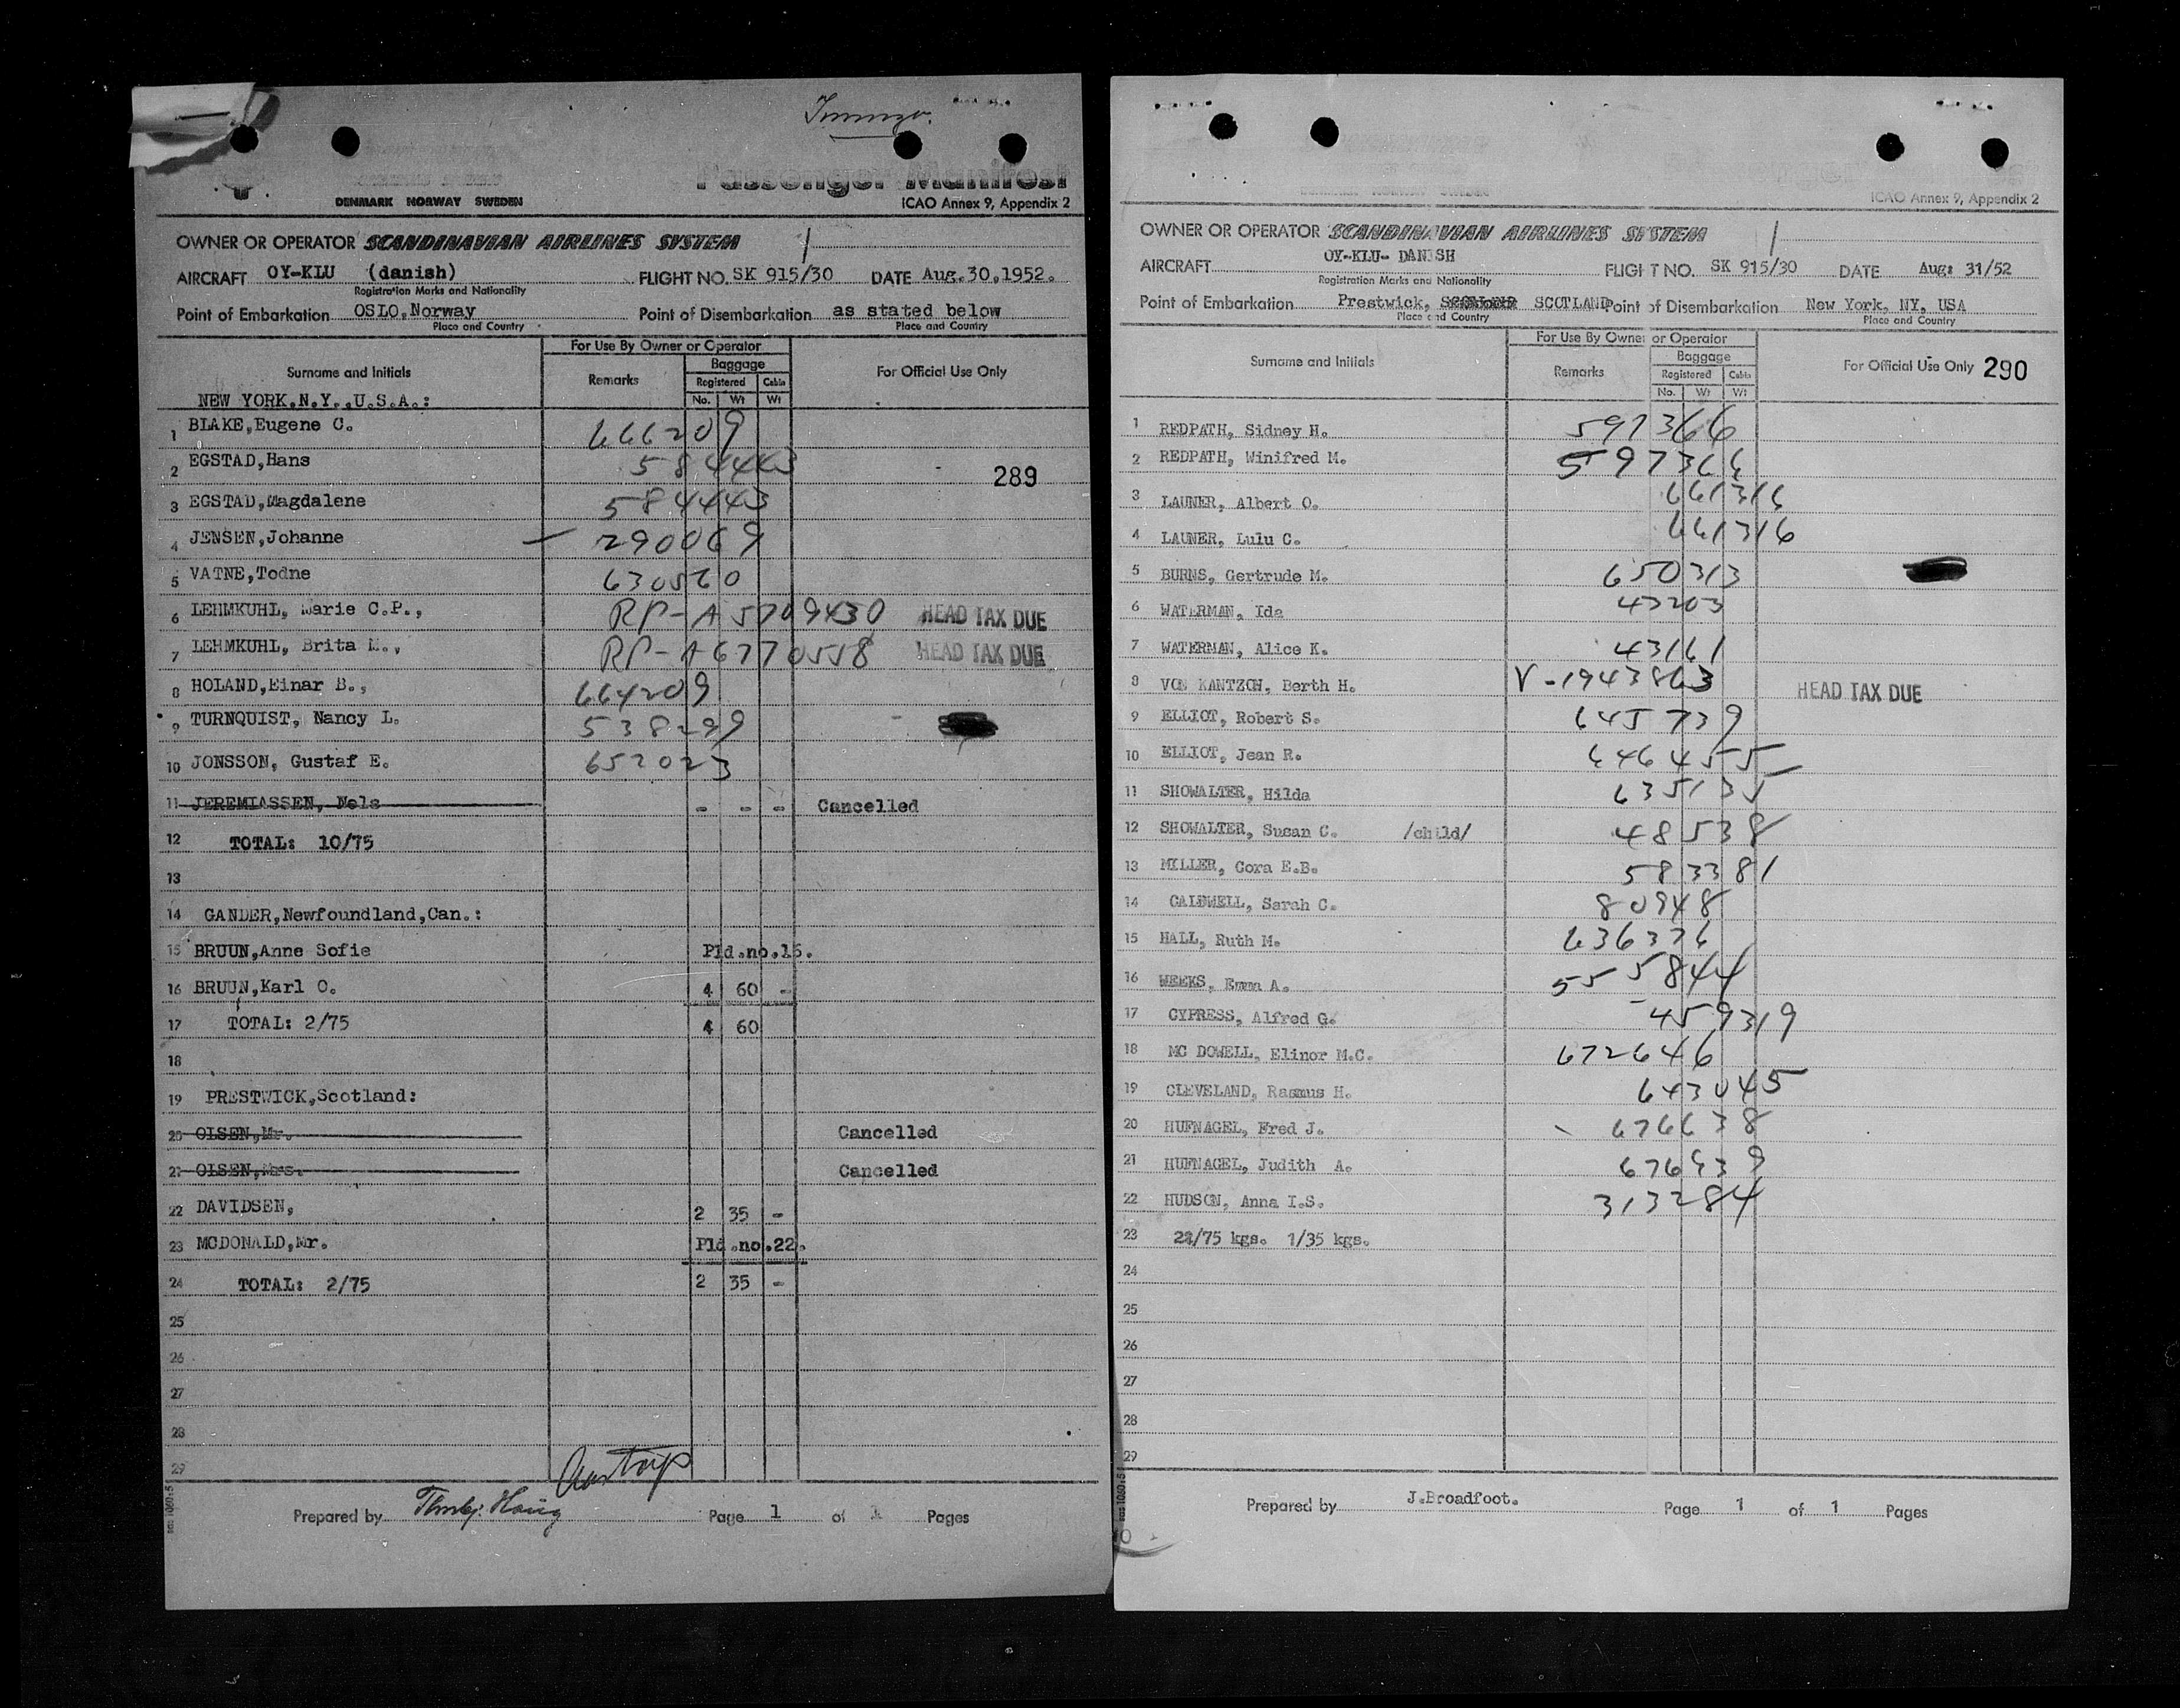 Passenger Manifest
DENMARK NORWAY SWEDEN
ICAO Annex 9, Appendix 2
OWNER OR OPERATOR SCANDINAVIAN AIRLINES SYSTEM
AIRCRAFT OY-KLU (danish) FLIGHT NO. SK 915/30 DATE Aug.30.1952.
Registration Marks and Nationality
Point of Embarkation OSLO,Norway Point of Disembarkation as stated below
Place and Country Place and Country
For Use By Owner or Operator
Baggage
Surname and Initials Remarks Registered Cabin For Official Use Only
No. Wt Wt
NEW YORK.N.Y.,U.S.A.:
1 BLAKE,Eugene C. 666209
2 EGSTAD,Hans 584443
289
3 EGSTAD,Magdalene 584443
4 JENSEN,Johanne — 290069
5 VATNE,Todne 630560
6 LEHMKUHL, Marie C.P., RP-A 5709430 HEAD TAX DUE
7 LEHMKUHL, Brita M., RP-A6770558 HEAD TAX DUE
8 HOLAND,Einar B., 664209
9 TURNQUIST, Nancy L. 538299
10 JONSSON, Gustaf E. 652023
11 JEREMIASSEN, Nels - - - Cancelled
12 TOTAL: 10/75
13
14 GANDER,Newfoundland,Can.:
15 BRUUN,Anne Sofie Pld.no.16.
16 BRUUN,Karl O. 4 60 -
17 TOTAL: 2/75 4 60
18
19 PRESTWICK,Scotland:
20 OLSEN,Mr. Cancelled
21 OLSEN,Mrs. Cancelled
22 DAVIDSEN, 2 35 -
23 MCDONALD,Mr. Pld.no.22.
24 TOTAL: 2/75 2 35 -
25
26
27
28
29
Prepared by Page 1 of 1 Pages
sas 1060:5
ICAO Annex 9, Appendix 2
OWNER OR OPERATOR SCANDINAVIAN AIRLINES SYSTEM
AIRCRAFT OY-KLU- DANISH FLIGHT NO. SK 915/30 DATE Aug: 31/52
Registration Marks and Nationality
Point of Embarkation Prestwick, SCOTLAND Point of Disembarkation New York, NY, USA
Place and Country Place and Country
For Use By Owner or Operator
Baggage
Surname and Initials Remarks Registered Cabin For Official Use Only 290
No. Wt Wt
1 REDPATH, Sidney H. 597366
2 REDPATH, Winifred M. 597366
3 LAUNER, Albert O. 661316
4 LAUNER, Lulu C. 661316
5 BURNS, Gertrude M. 650313
6 WATERMAN, Ida 43203
7 WATERMAN, Alice K. 43161
8 VON KANTZON, Berth H. V-1943863 HEAD TAX DUE
9 ELLIOT, Robert S. 645739
10 ELLIOT, Jean R. 646455
11 SHOWALTER, Hilda 635135
12 SHOWALTER, Susan C. /child/ 48538
13 MILLER, Cora E.B. 583381
14 CALDWELL, Sarah C. 80948
15 HALL, Ruth M. 636376
16 WEEKS, Emma A. 555844
17 CYPRESS, Alfred G. 459319
18 MC DOWELL, Elinor M.C. 672646
19 CLEVELAND, Rasmus H. 643045
20 HUFNAGEL, Fred J. 676638
21 HUFNAGEL, Judith A. 676639
22 HUDSON, Anna I.S. 313284
23 22/75 kgs. 1/35 kgs.
24
25
26
27
28
29
Prepared by J.Broadfoot. Page 1 of 1 Pages
sas 1060:5